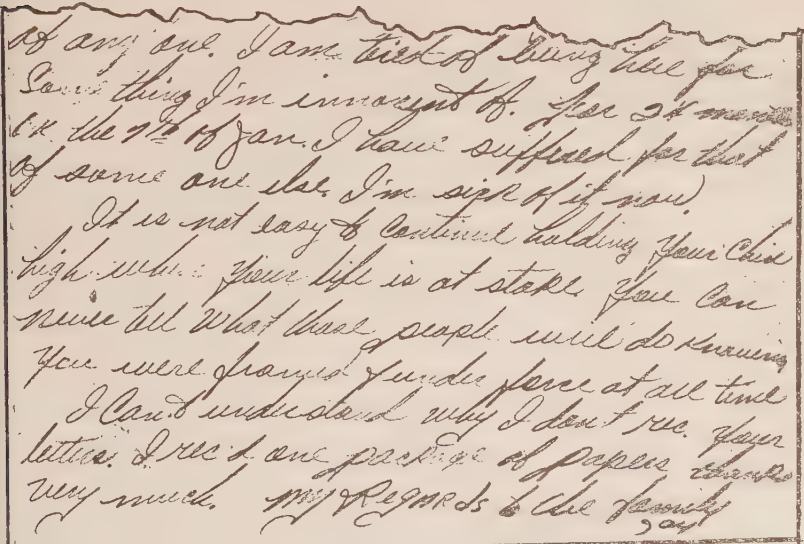 of any one. I am tired of being here for
Something I'm innocent of. For 24 months
on the 7th of Jan. I have suffered for that
of some one else. I'm sick of it now.
It is not easy to continue holding your chin
high when your life is at stake. You can
never tell what those people will do knowing
You were framed & under force at all time
I Can't understand why I don't rec. your
letters. I rec'd one package of papers thanks
very much. My Regards to the family